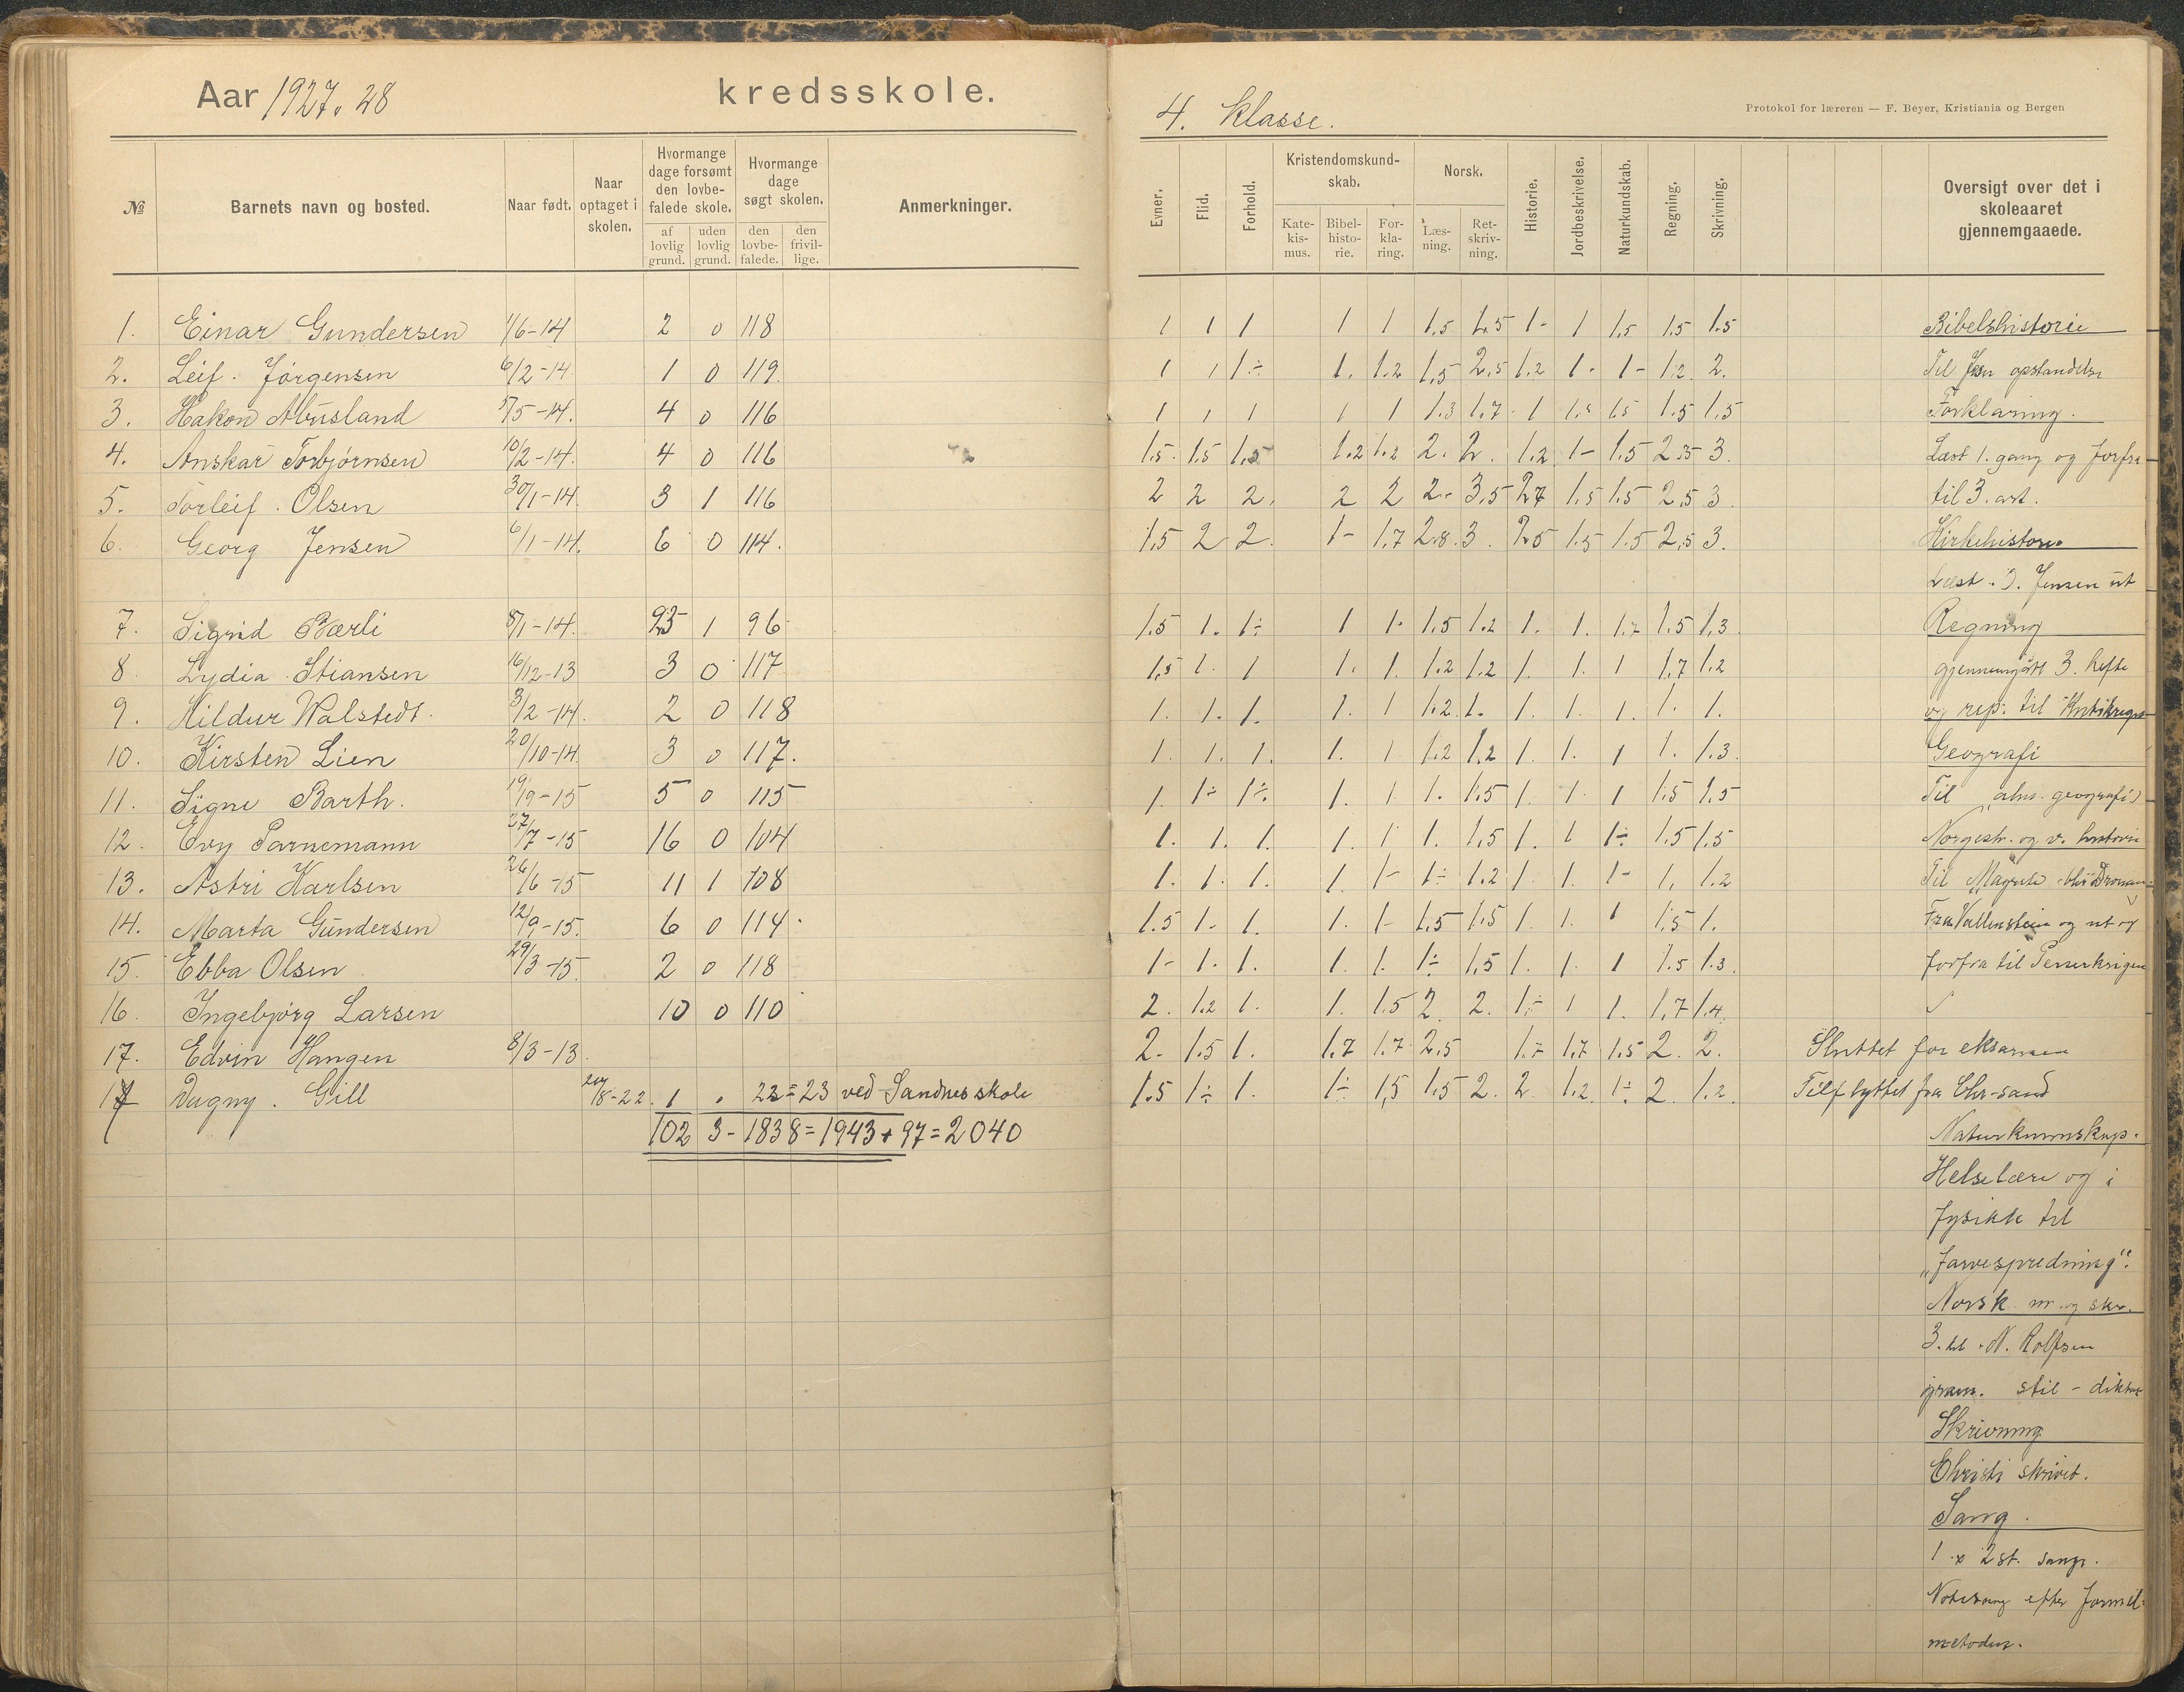 Aar 1927-28 kredsskole.
№ Barnets navn og bosted. Naar født. Naar optaget i skolen. Hvormange dage forsømt den lovbefalede skole. af lovlig grund. uden lovlig grund. Hvormange dage søgt skolen. den lovbefalede. den frivillige. Anmerkninger.
1. Einar Gundersen 1/6-14 2 0 118
2. Leif Jørgensen 6/2-14 1 0 119.
3. Håkon Abusland 5/5-14. 4 0 116
4. Anskar Torbjørnsen 10/2-14. 4 0 116
5. Torleif Olsen 30/1-14. 3 1 116
6. Georg Jensen 6/1-14. 6 0 114.
7. Sigrid Bærli 8/1-14. 23 1 96
8. Lydia Stiansen 16/12-13 3 0 117
9. Hildur Walstedt. 3/2-14. 2 0 118
10. Kirsten Lien 20/10-14. 3 0 117.
11. Signe Barth. 19/9-15 5 0 115
12. Evy Parnemann 27/7-15 16 0 104
13. Astri Karlsen 26/6-15 11 1 108
14. Marta Gundersen 12/9-15. 6 0 114.
15. Ebba Olsen 29/3-15. 2 0 118
16. Ingebjørg Larsen 10 0 110
17. Edvin Haugen 8/3-13.
17 Dagny. Gill /8-22. 1 . 22=23 ved Sandnes skole
102 3 - 1838=1943+97=2040
4. klasse.
Protokol for læreren — F. Beyer, Kristiania og Bergen
Evner. Flid. Forhold. Kristendomskundskab. Katekismus. Bibelhistorie. Forklaring. Norsk. Læsning. Retskrivning. Historie. Jordbeskrivelse. Naturkundskab. Regning. Skrivning. Oversigt over det i skoleaaret gjennemgaaede.
1 1 1 1 1 1.5 1.5 1- 1 1.5 1.5 1.5 Bibelshistorie
1 1 1÷ 1. 1.2 1.5 2.5 1.2 1- 1- 1.2 2. Til Jesu opstandelse
1 1 1 1 1 1.3 1.7 1 1.5 1.5 1.5 1.5 Forklaring.
1.5 1.5 1.5 1.2 1.2 2. 2. 1.2 1- 1.5 2.5 3. Læst 1. gang og forfra
2 2 2. 2 2 2- 3.5 2.7 1.5 1.5 2.5 3. til 3. art.
1.5 2 2. 1- 1.7 2.8 3. 2.5 1.5 1.5 2.5 3. Kirkehistorie
Læst J. Jensen ut
1.5 1. 1÷ 1 1- 1.5 1.2 1. 1. 1.7 1.5 1.3 Regning
1.5 1. 1 1. 1. 1.2 1.2 1. 1. 1 1.7 1.2 gjennemgått 3. hefte
1. 1. 1. 1. 1 1.2 1. 1. 1. 1. 1. 1. og rep. til
1. 1. 1. 1. 1 1.2 1.2 1. 1. 1 1. 1.3. Geografi
1. 1÷ 1÷. 1. 1 1. 1.5 1. 1. 1 1.5 1.5 Til „alm. geografi"
1. 1. 1. 1. 1 1. 1.5 1. 1 1÷ 1.5 1.5 Norgesh. og v. historie
1. 1. 1. 1. 1- 1÷ 1.2 1. 1. 1- 1. 1.2 Til „Magrete blir
1.5 1- 1. 1. 1- 1.5 1.5 1. 1. 1 1.5 1. Fra Vallenstein og ut og
1- 1. 1. 1. 1. 1÷ 1.5 1. 1. 1 1.5 1.3. forfra til Perserkrigen
2. 1.2 1. 1. 1.5 2. 2. 1÷ 1 1. 1.7 1.4.
2. 1.5 1. 1.7 1.7 2.5 1.7 1.7 1.5 2. 2. Sluttet før eksamen
1.5 1÷ 1. 1÷ 1.5 1.5 2. 2. 1.2 1÷ 2. 1.2. Tilflyttet fra Chr-sand
Naturkunnskap.
Helselære og i
fysikk til
„farvespredning".
Norsk m. og skr.
3. del N. Rolfsen
gram. stil - diktat
Skrivning
Christi skriveb.
Sang.
1 x 2 st. sange.
Notesang efter formel-
metoden.